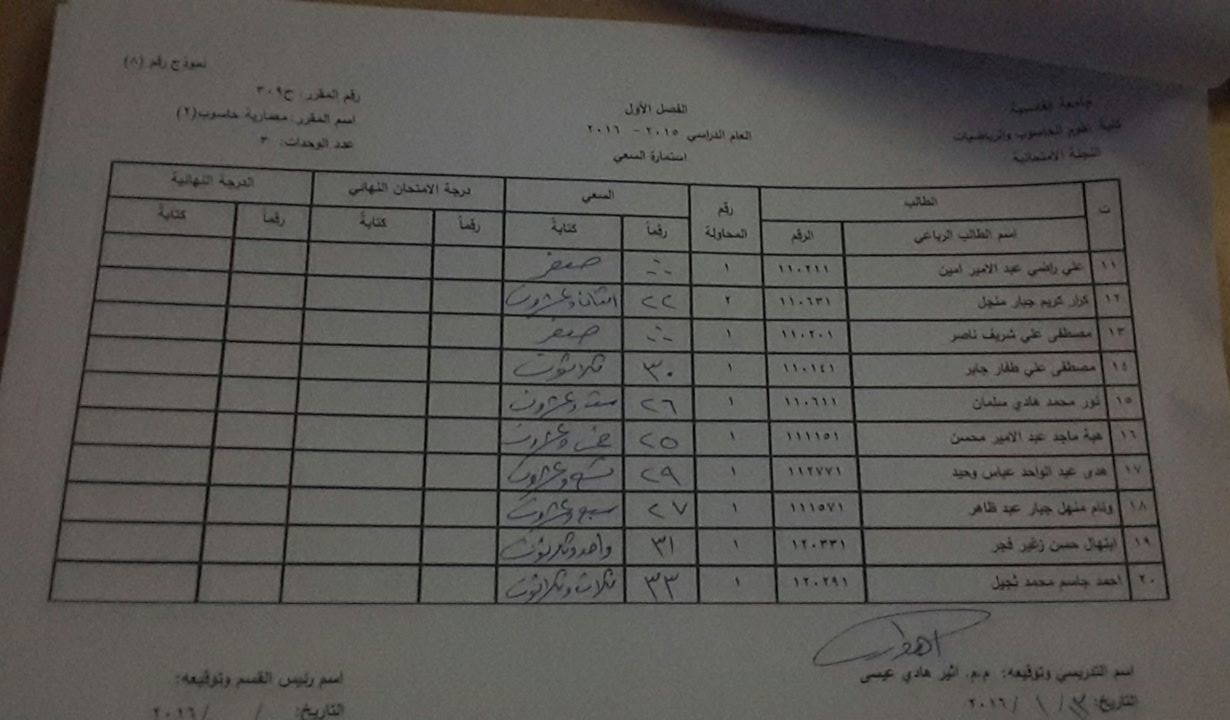 نموذج رقم (٨)
جامعة القادسية
كلية علوم الحاسوب والرياضيات
اللجنة الامتحانية
الفصل الأول
العام الدراسي ٢٠١٥ - ٢٠١٦
استمارة السعي
رقم المقرر: ح٣٠٩
اسم المقرر: معمارية حاسوب(٢)
عدد الوحدات: ٣
ت الطالب رقم المحاولة السعي درجة الامتحان النهائي الدرجة النهائية
اسم الطالب الرباعي الرقم رقماً كتابةً رقماً كتابةً رقماً كتابةً
١١ علي راضي عبد الامير امين ١١٠٢١١ ١ صفر
١٢ كرار كريم جبار منجل ١١٠٦٣١ ٢ ٢٢ اثنان وعشرون
١٣ مصطفى علي شريف ناصر ١١٠٢٠١ ١ صفر
مصطفى علي ظفار جابر ١١٠١٤١ ١ ٣٠ ثلاثون
١٥ نور محمد هادي سلمان ١١٠٦١١ ١ ٢٦ ست وعشرون
١٦ هبة ماجد عبد الامير محسن ١١١١٥١ ١ ٢٥ خمس وعشرون
١٧ هدى عبد الواحد عباس وحيد ١١٢٧٧١ ١ ٢٩ تسع وعشرون
١٨ وئام منهل جبار عبد ظاهر ١١١٥٧١ ١ ٢٧ سبع وعشرون
١٩ ابتهال حسن زغير فجر ١٢٠٣٣١ ١ ٣١ واحد وثلاثون
٢٠ احمد جاسم محمد ثجيل ١٢٠٢٩١ ١ ٣٣ ثلاث وثلاثون
اسم التدريسي وتوقيعه: م.م. اثير هادي عيسى
التاريخ: ٣ / ١ / ٢٠١٦
اسم رئيس القسم وتوقيعه:
التاريخ: / / ٢٠١٦